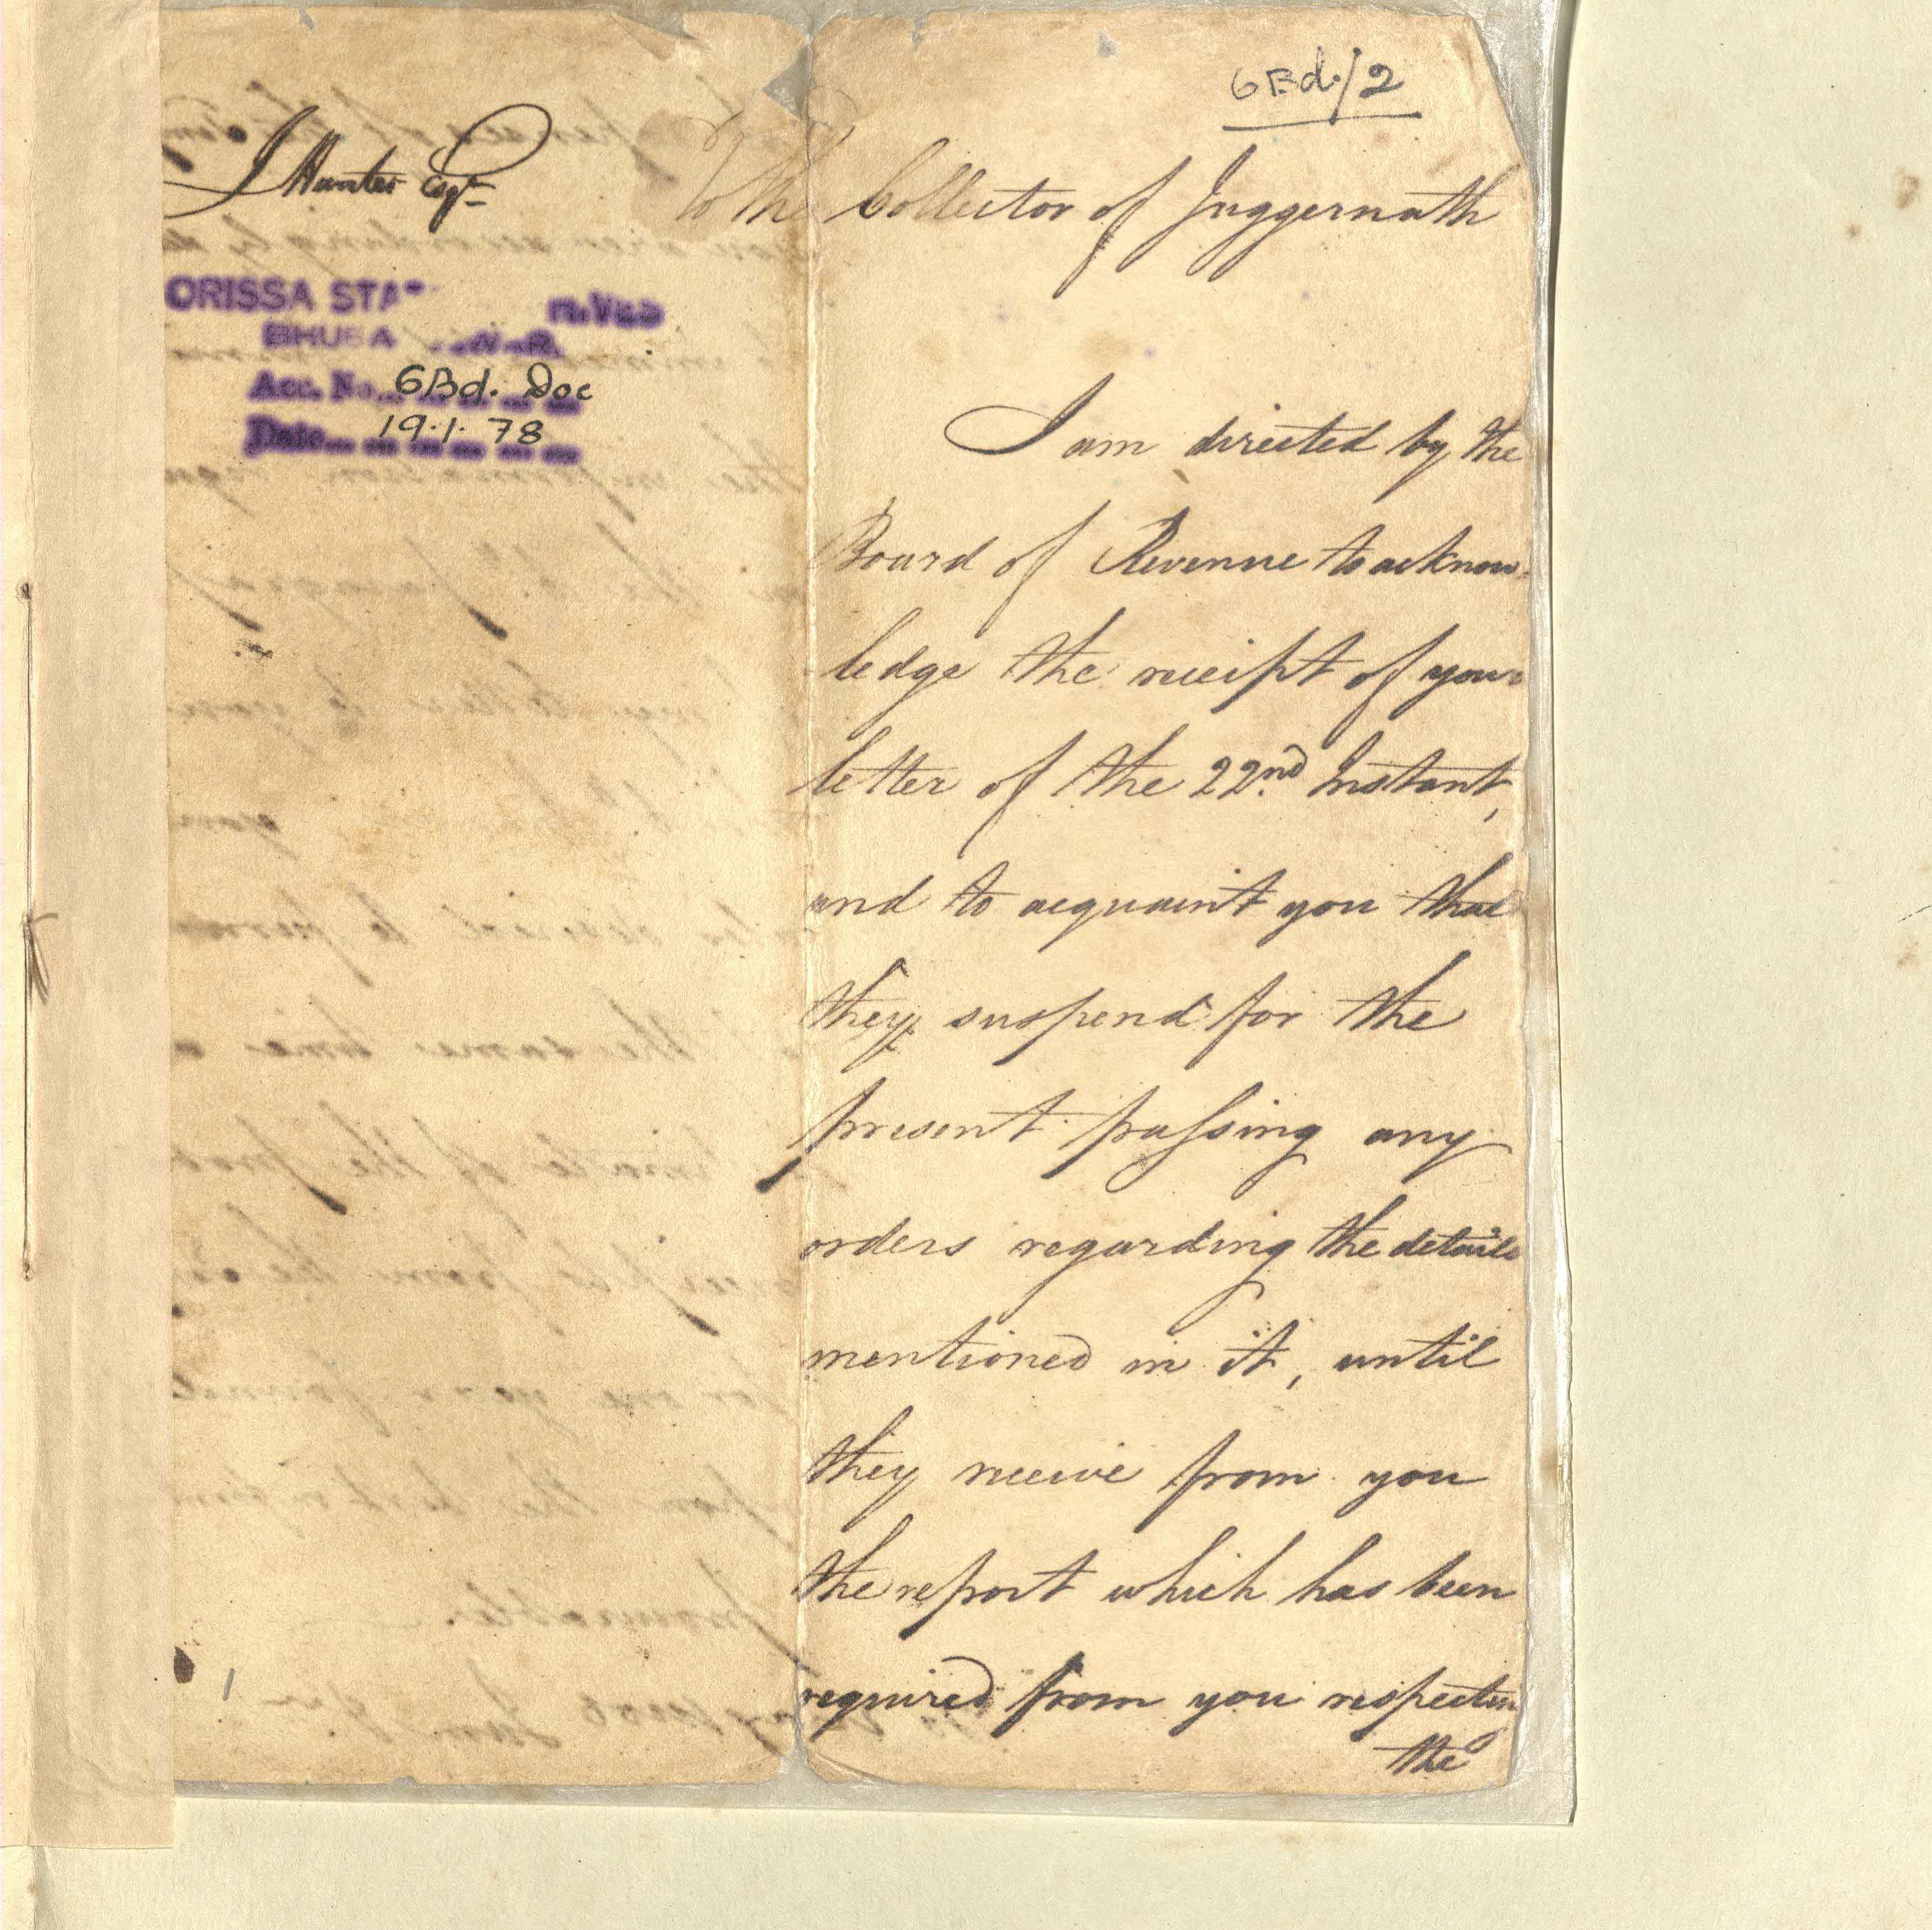 6 Bd./2
J Hunter Esqr
To the Collector of Juggernath
ORISSA STA
BHUBA
Acc. No. 6Bd. Doc
Date 19.1.78
I am directed by the
Board of Revenue to acknow-
ledge the receipt of your
letter of the 22nd Instant,
and to acquaint you that
they suspend for the
present passing any
orders regarding the details
mentioned in it, until
they receive from you
the report which has been
required from you respecting
the
1